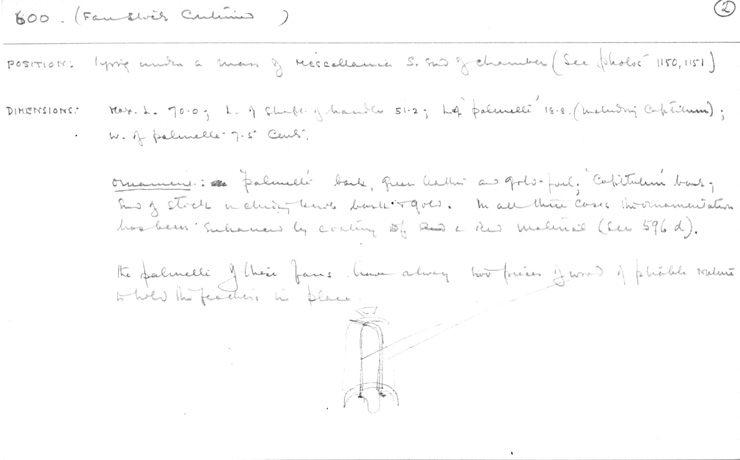 600. (Fan Stick Continued)
2
POSITION: lying under a mass of Miscellanea S. End of chamber (See photos 1150, 1151)
DIMENSIONS: Max. L. 70.0; L. of shaft of handle 51.2; L. of 'palmette' 18.8. (including Capitulum);
W. of palmette 7.5 Cents.
Ornament: palmette bark, green leather and gold-foil; 'Capitulum' bark;
End of stock including knob bark & gold. In all three cases the ornamentation
has been enhanced by coating of a Red Material (See 596 d).
The palmette of these fans have always two pieces of wood of pliable nature
to hold the feathers in place